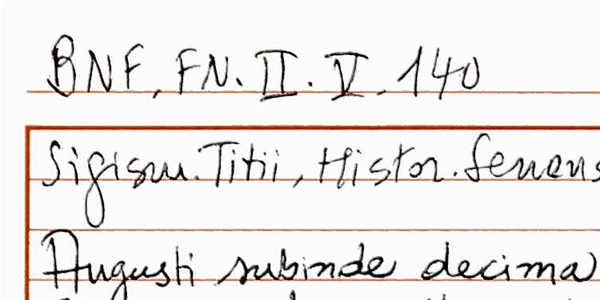 BNF, FN. II. V. 140
Sigism. Titii, Histor. Senens
Augusti subinde decima